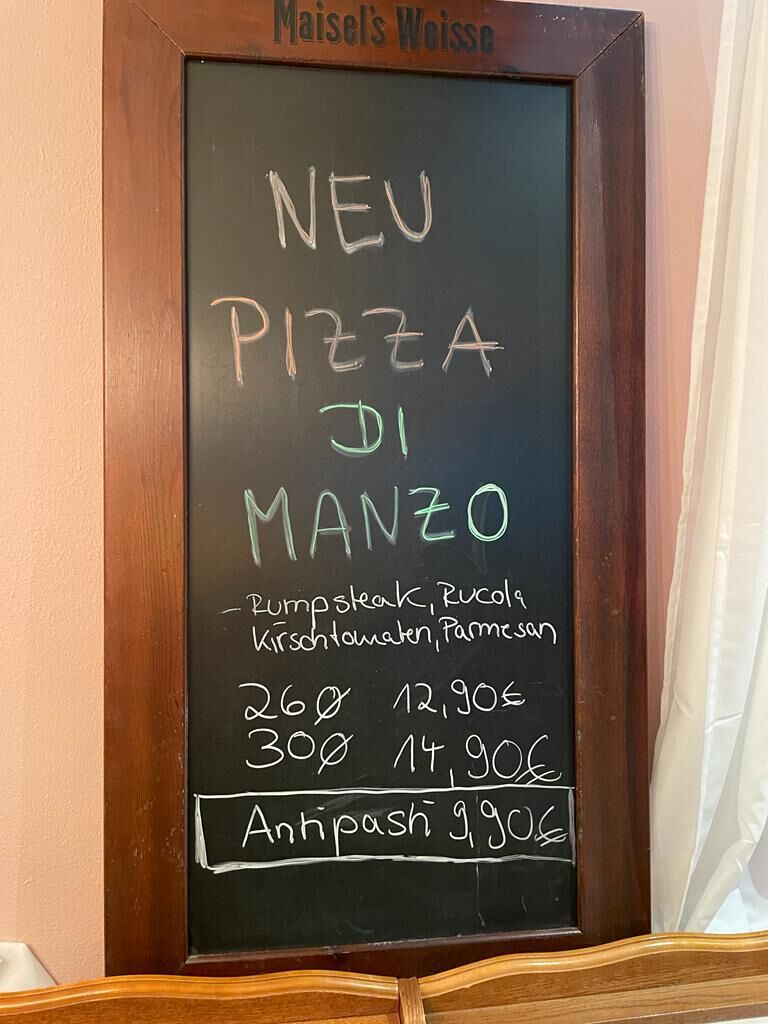 Maisel's Weisse
NEU
PIZZA
DI
MANZO
- Rumpsteak, Rucola
Kirschtomaten, Parmesan
26Ø 12,90€
30Ø 14,90€
Antipasti 9,90€